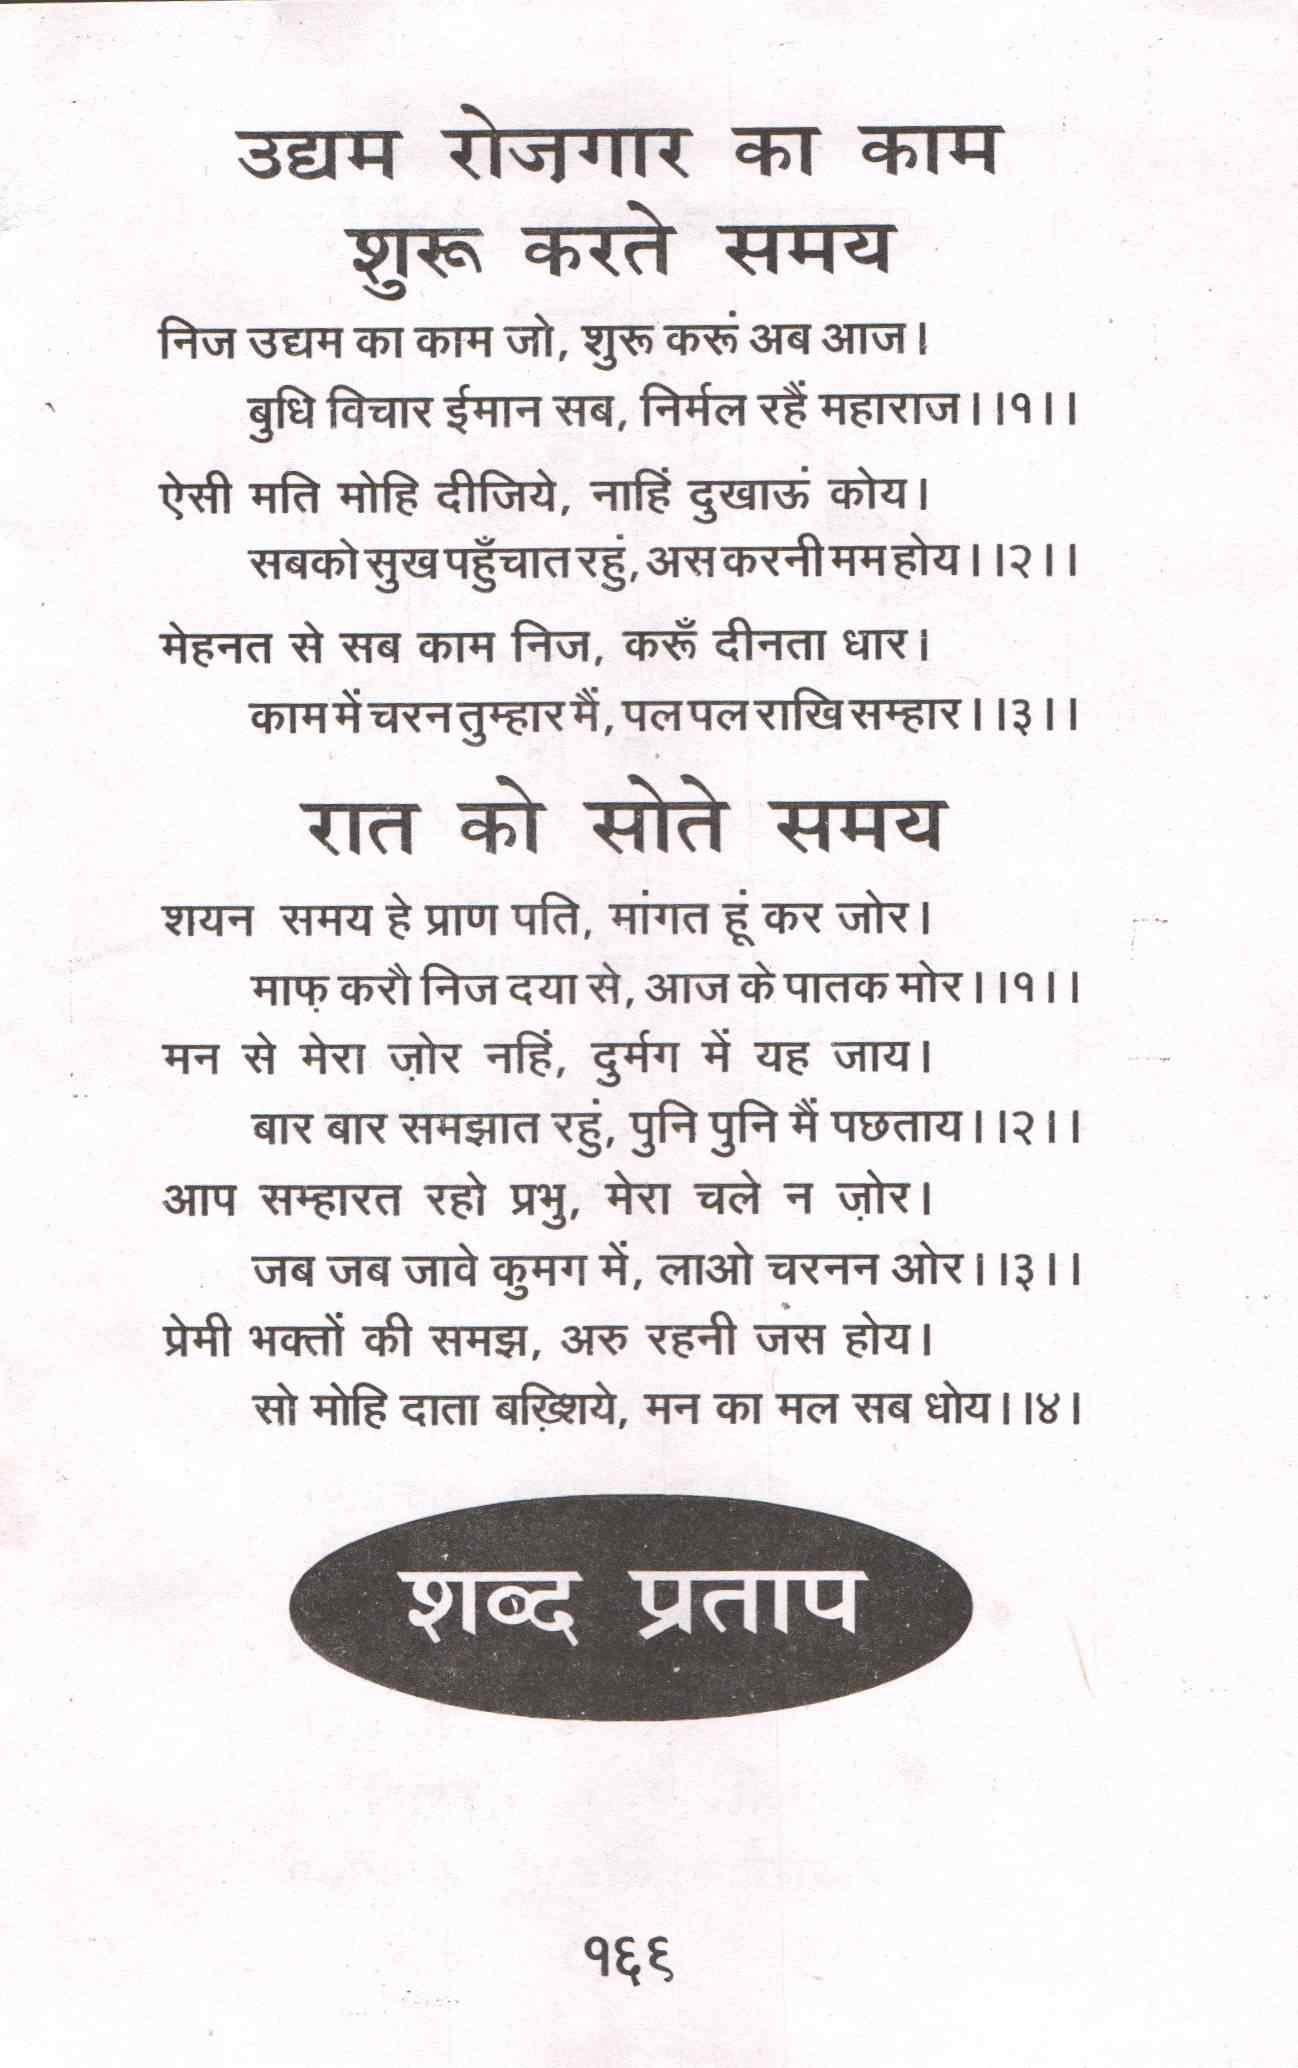 उद्यम रोज़गार का काम
शुरू करते समय
निज उद्यम का काम जो, शुरू करूं अब आज।
बुधि विचार ईमान सब, निर्मल रहैं महाराज।।१।।
ऐसी मति मोहि दीजिये, नाहिं दुखाऊं कोय।
सबको सुख पहुँचात रहुं, अस करनी मम होय।।२।।
मेहनत से सब काम निज, करूँ दीनता धार।
काम में चरन तुम्हार मैं, पल पल राखि सम्हार।।३।।
रात को सोते समय
शयन समय हे प्राण पति, मांगत हूं कर जोर।
माफ़ करौ निज दया से, आज के पातक मोर।।१।।
मन से मेरा ज़ोर नहिं, दुर्मग में यह जाय।
बार बार समझात रहुं, पुनि पुनि मैं पछताय।।२।।
आप सम्हारत रहो प्रभु, मेरा चले न ज़ोर।
जब जब जावे कुमग में, लाओ चरनन ओर।।३।।
प्रेमी भक्तों की समझ, अरु रहनी जस होय।
सो मोहि दाता बख़्शिये, मन का मल सब धोय।।४।
शब्द प्रताप
१६९